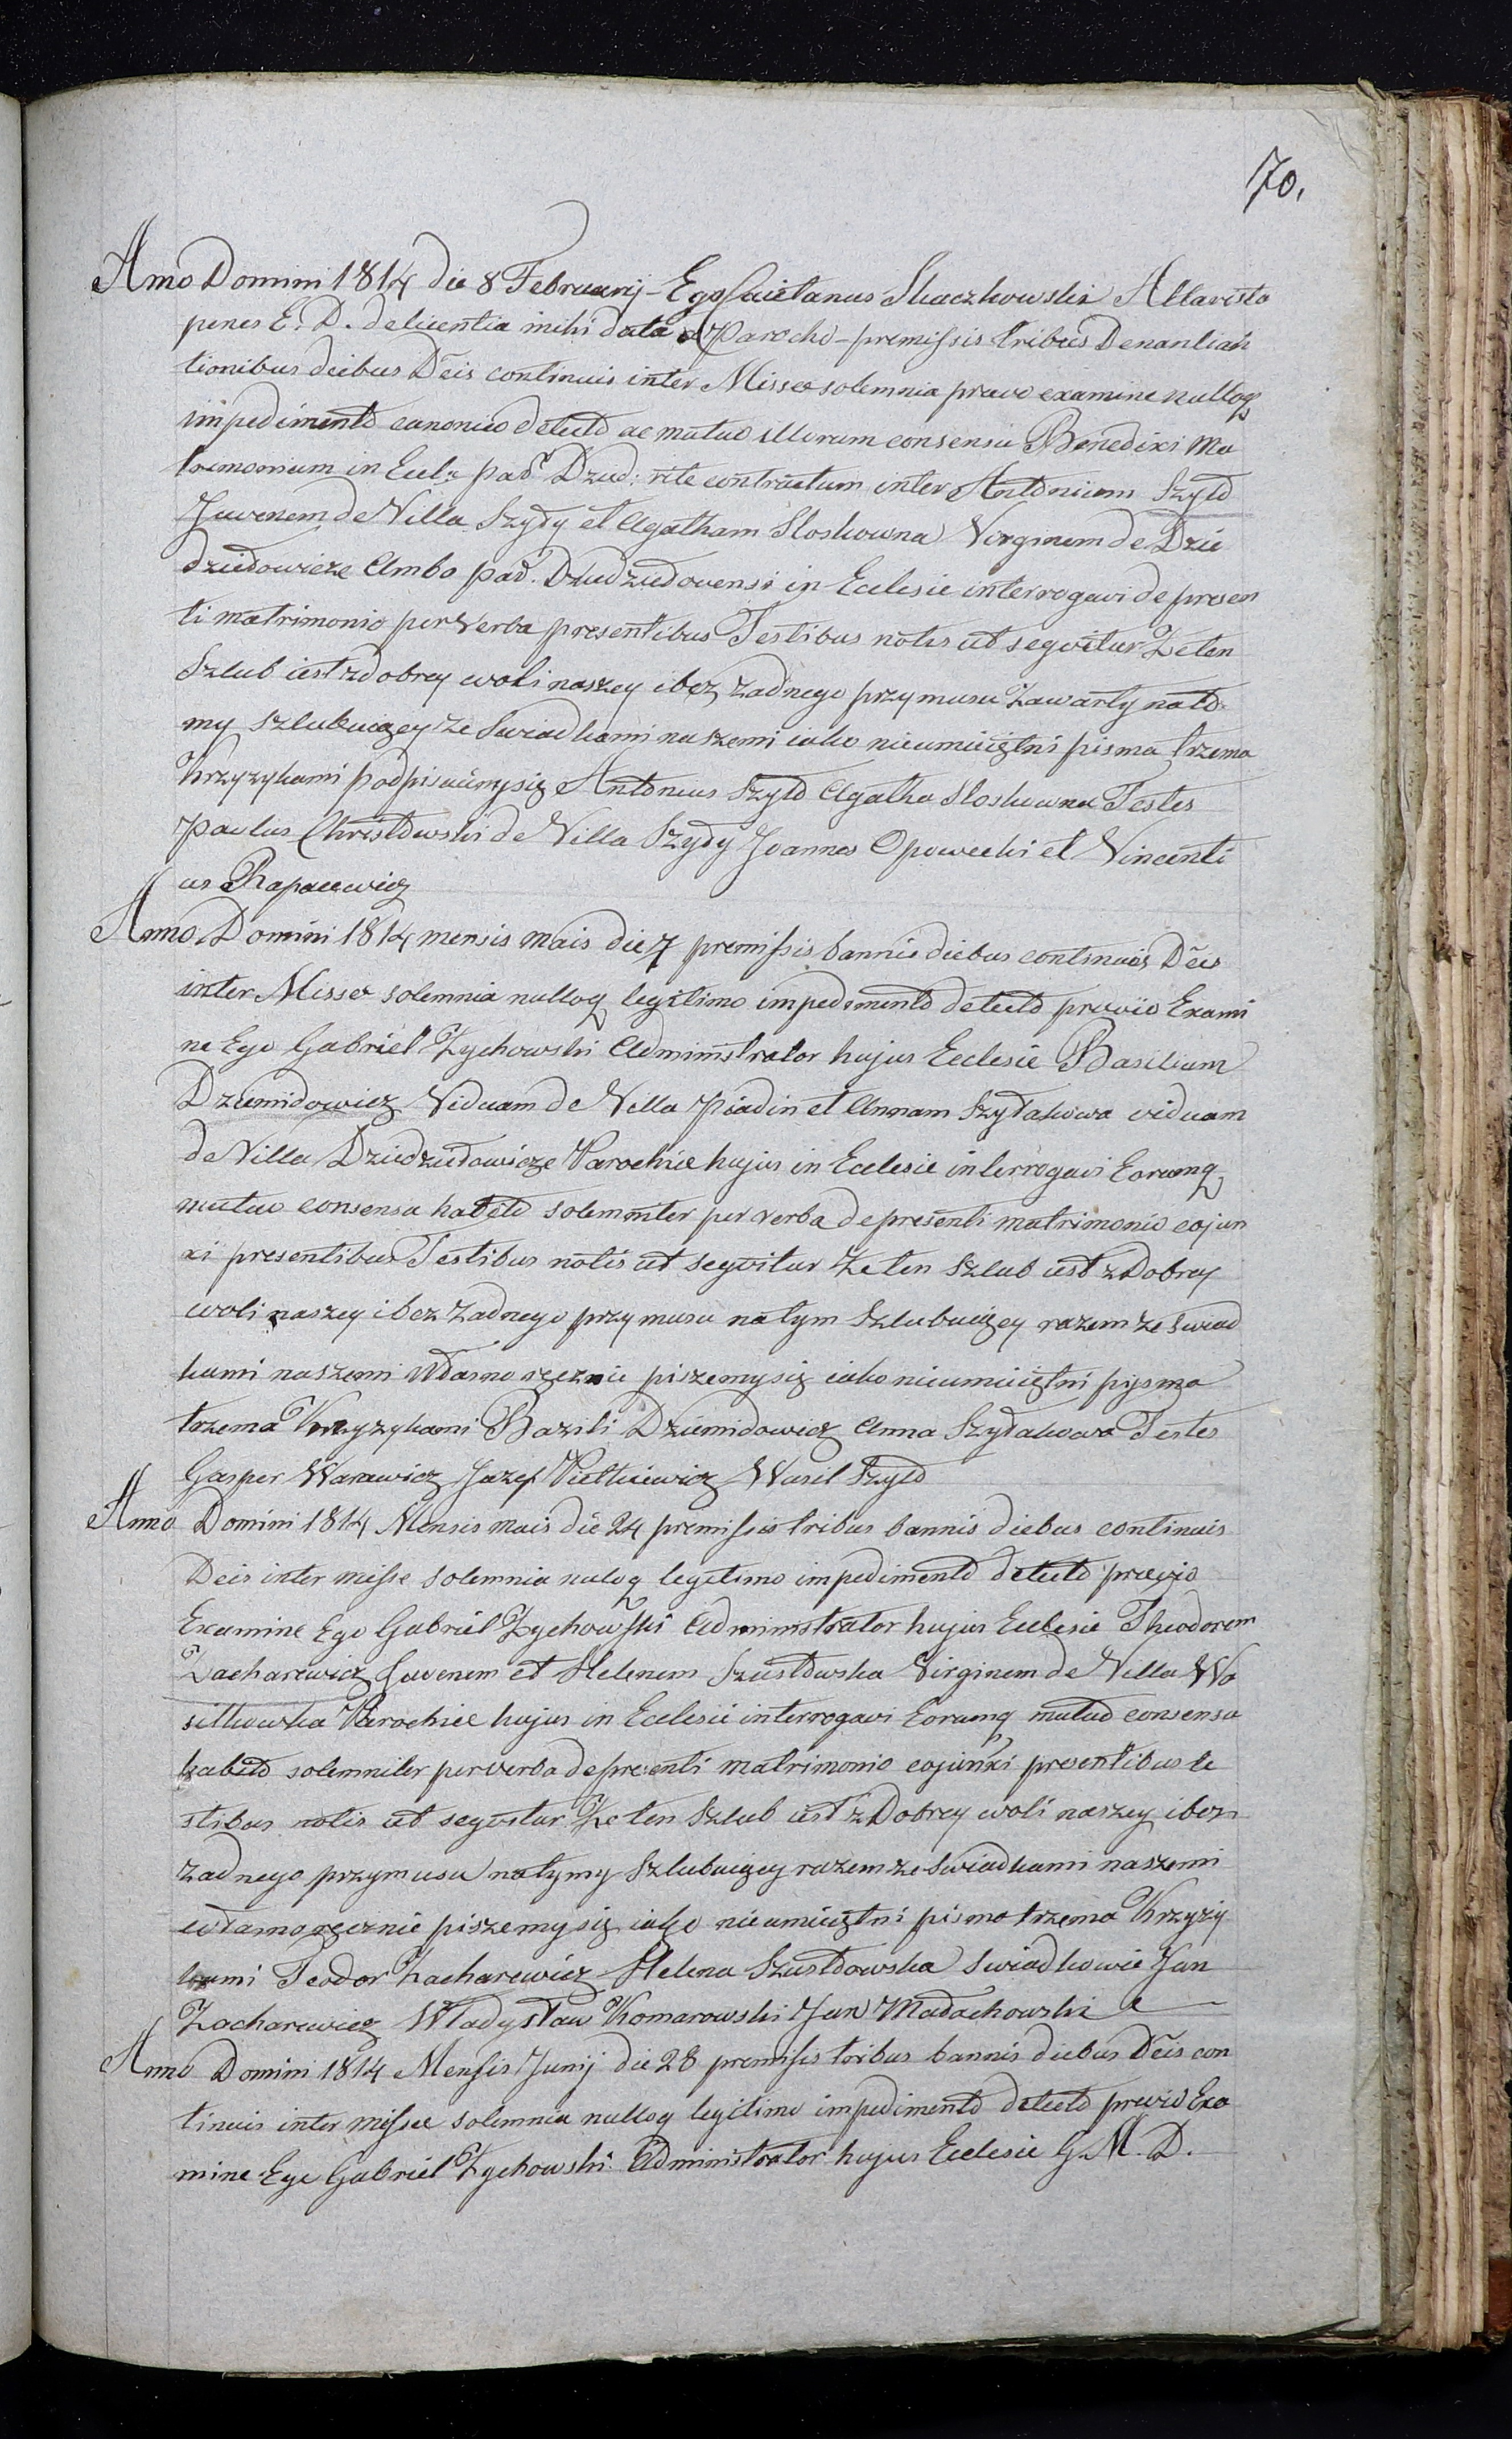 70.
Anno Domini 1814 die 8 Februarij - Ego Caietanus Skaczkowski Altarista
penes E. D. delicentia mihi data a Parocho - premissis tribus Denantiah
tionibus deibus Deis continuis inter Missæ solemnia prævo examine nulloq
impedimento canonico detecto ac mutuo illorum consensu Benedixi Ma
trimonium in Eccl: par: Dzud: rite contractum inter Antonium Szyło
Juvenem de Villa Szyły et Agatham Sloskowna Virginem de Dzie
dziedowicze Ambo par. Dziudziudovensi in Ecclesie interrogavi de presen
ti matrimonio per verba presentibus Testibus notis ut segvitur Że ten
Szlub iest zdobrey woli naszey i bez żadnego przymusu Zawarty nato
my szlubuięcy ze Swiadkami naszemi iako nieumieiętni pisma trzema
krzyzykami podpisuiemysię Antonius Szyło Agatha Sloskowna Testes
Paulus Christowski de Villa Szyły Joannes Opowecki et Vincenti
us Rapacewicz
Anno Domini 1814 mensis mais die 7 premissis bannis diebus continuis Deis
inter Missæ solemnia nulloq legitimo impedimento detecto prævio Exami
ne Ego Gabriel Zychowski Administrator hujus Ecclesie Basilium
Dziemidowicz Viduam de Villa Piadin et Annam Szyłakowa viduam
de Villa Dziedziudowicze Parochiæ hujus in Ecclesie interrogavi Eorumq
mutuo consensu habito solemniter per verba depresenti matrimonio cojun
xi presentibus Testibus notis ut segvitur Że ten Szlub iest z Dobrey
woli naszey i bez żadnego przymusu natym Szlubuięcy razem ze swiad
kami naszemi Własno ręcznie piszemysię iako nieumieiętni pysma
trzema Krzyzykami Bazili Dziemidowicz Anna Szyłakowa Testes
Gasper Warawicz Jazef Pietkiewicz Wasil Szyło
Anno Domini 1814 Mensis mais die 24 premissis tribus bannis diebus continuis
Deis inter misse solemnia nuloq legitimo impedimento detecto prævio
Examine Ego Gabriel Zychowski Administrator hujus Ecclesie Theodorem
Zacharewicz Juvenem et Helenem Szustowska Virginem de Villa Wa
silkowka Parochiæ hujus in Ecclesie interrogavi Eorumq mutuo consensu
habito solemniter per verba depresenti matrimonio cojunxi presentibus te
stibus notis ut segvitur Że ten Szlub iest z Dobrey woli naszey i bez
żadnego przymusu natymy Szlubuięcy razem ze swiadkami naszemi
własno ręcznie piszemysię iako nieumieiętni pisma trzema Krzyzy
kami Teodor Zacharewicz Helena Szustowska Swiadkowie Jan
Zacharewicz Władysław Komarowski Jan Madachowski
Anno Domini 1814 Mensis Junij die 28 premissis tribus bannis diebus Deis con
tinuis inter missæ solemnia nulloq legitimo impedimento detecto previo Exa
mine Ego Gabriel Zychowski Administrator hujus Ecclesie G. M. D.